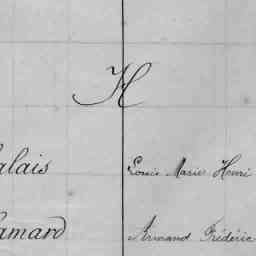 H
alais Louis Marie Henri
amard Armand Frédéric